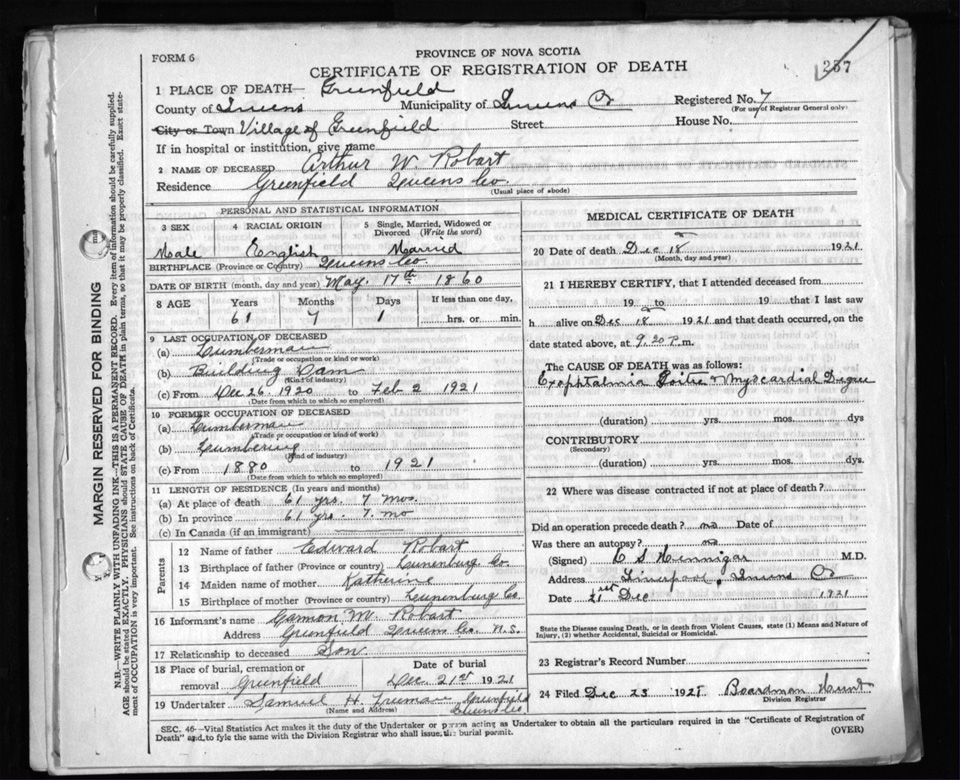 FORM 6
PROVINCE OF NOVA SCOTIA
257
CERTIFICATE OF REGISTRATION OF DEATH
1 PLACE OF DEATH— Greenfield
County of Queens Municipality of Queens Co Registered No. 7
(For use of Registrar General only)
City or Town Village of Greenfield Street House No.
If in hospital or institution, give name
2 NAME OF DECEASED Arthur W. Robart
Residence Greenfield Queens Co.
(Usual place of abode)
PERSONAL AND STATISTICAL INFORMATION
3 SEX 4 RACIAL ORIGIN 5 Single, Married, Widowed or Divorced (Write the word)
Male English Married
BIRTHPLACE (Province or Country) Queens Co.
DATE OF BIRTH (month, day and year) May. 17th 1860
8 AGE Years Months Days If less than one day,
61 7 1 hrs. or min.
9 LAST OCCUPATION OF DECEASED
(a) Lumberman
(Trade or occupation or kind or work)
(b) Building Dam
(Kind of industry)
(c) From Dec 26, 1920 to Feb 2 1921
(Date from which to which so employed)
10 FORMER OCCUPATION OF DECEASED
(a) Lumberman
(Trade or occupation or kind of work)
(b) Lumbering
(Kind of industry)
(c) From 1880 to 1921
(Date from which to which so employed)
11 LENGTH OF RESIDENCE (In years and months)
(a) At place of death 61 yrs. 7 mos.
(b) In province 61 yrs. 7. mo
(c) In Canada (if an immigrant)
Parents
12 Name of father Edward Robart
13 Birthplace of father (Province or country) Lunenburg Co.
14 Maiden name of mother Katherine
15 Birthplace of mother (Province or country) Lunenburg Co.
16 Informant's name M. Robart
Address Greenfield Queens Co. N.S.
17 Relationship to deceased Son
18 Place of burial, cremation or removal Greenfield
Date of burial
Dec. 21st 1921
19 Undertaker Samuel H. Greenfield Queens Co.
(Name and Address)
MEDICAL CERTIFICATE OF DEATH
20 Date of death Dec 18 1921
(Month, day and year)
21 I HEREBY CERTIFY, that I attended deceased from
19 to 19 that I last saw
h alive on Dec 18 1921 and that death occurred, on the
date stated above, at 9.20 P.m.
The CAUSE OF DEATH was as follows:
Exophtalmia Goitre & Myocardial
(duration) yrs. mos. dys
CONTRIBUTORY
(Secondary)
(duration) yrs. mos. dys.
22 Where was disease contracted if not at place of death?
Did an operation precede death? no Date of
Was there an autopsy? no
(Signed) C S Hennigar M.D.
Address Liverpool, Queens Co
Date 21st Dec 1921
State the Disease causing Death, or in death from Violent Causes, state (1) Means and Nature of
Injury, (2) whether Accidental, Suicidal or Homicidal.
23 Registrar's Record Number
24 Filed Dec 23 1921 Boardman Hunt
Division Registrar
SEC. 46—Vital Statistics Act makes it the duty of the Undertaker or person acting as Undertaker to obtain all the particulars required in the "Certificate of Registration of
Death" and to fyle the same with the Division Registrar who shall issue the burial permit.
(OVER)
MARGIN RESERVED FOR BINDING
N.B.—WRITE PLAINLY WITH UNFADING INK—THIS IS A PERMANENT RECORD. Every item of information should be carefully supplied.
AGE should be stated EXACTLY. PHYSICIANS should STATE CAUSE OF DEATH in plain terms, so that it may be properly classified. Exact state-
ment of OCCUPATION is very important. See instructions on back of Certificate.